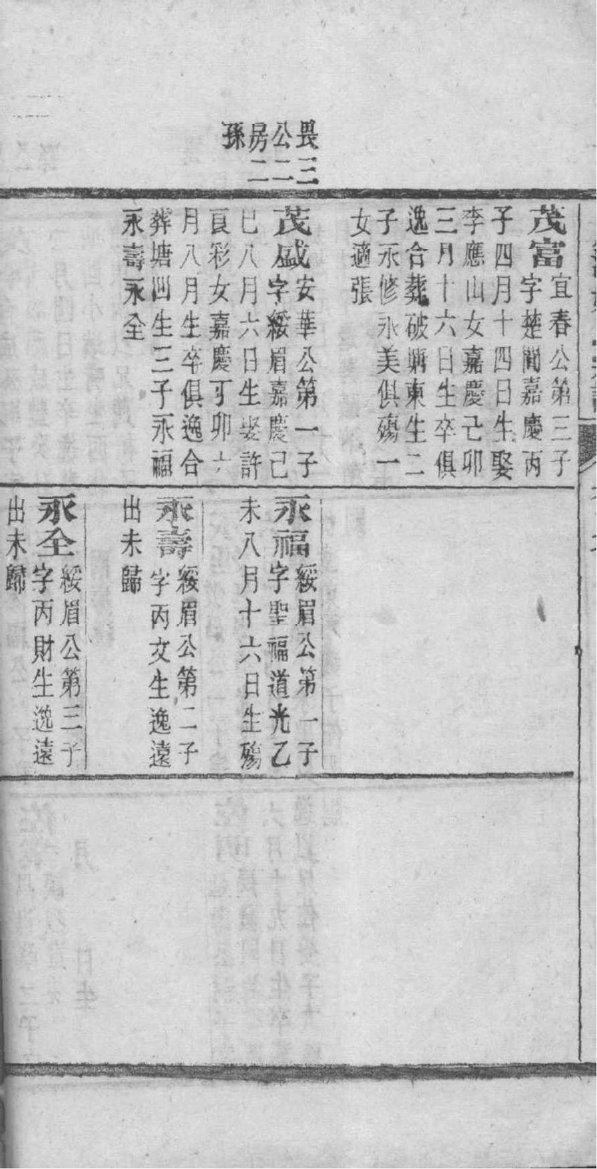 畏三
公二
房二
孫
茂富宜春公第三子
字楚聞嘉慶丙
子四月十四日生娶
李應山女嘉慶己卯
三月十六日生卒俱
逸合葬破壩東生二
子永修永美俱殤一
女適張
茂盛安華公第一子
字綏眉嘉慶己
巳八月六日生娶許
良彩女嘉慶丁卯六
月八月生卒俱逸合
葬塘四生三子永福
永壽永全
永福綏眉公第一子
字聖福道光乙
未八月十六日生殤
永壽綏眉公第二子
字丙文生逸遠
出未歸
永全綏眉公第三子
字丙財生逸遠
出未歸